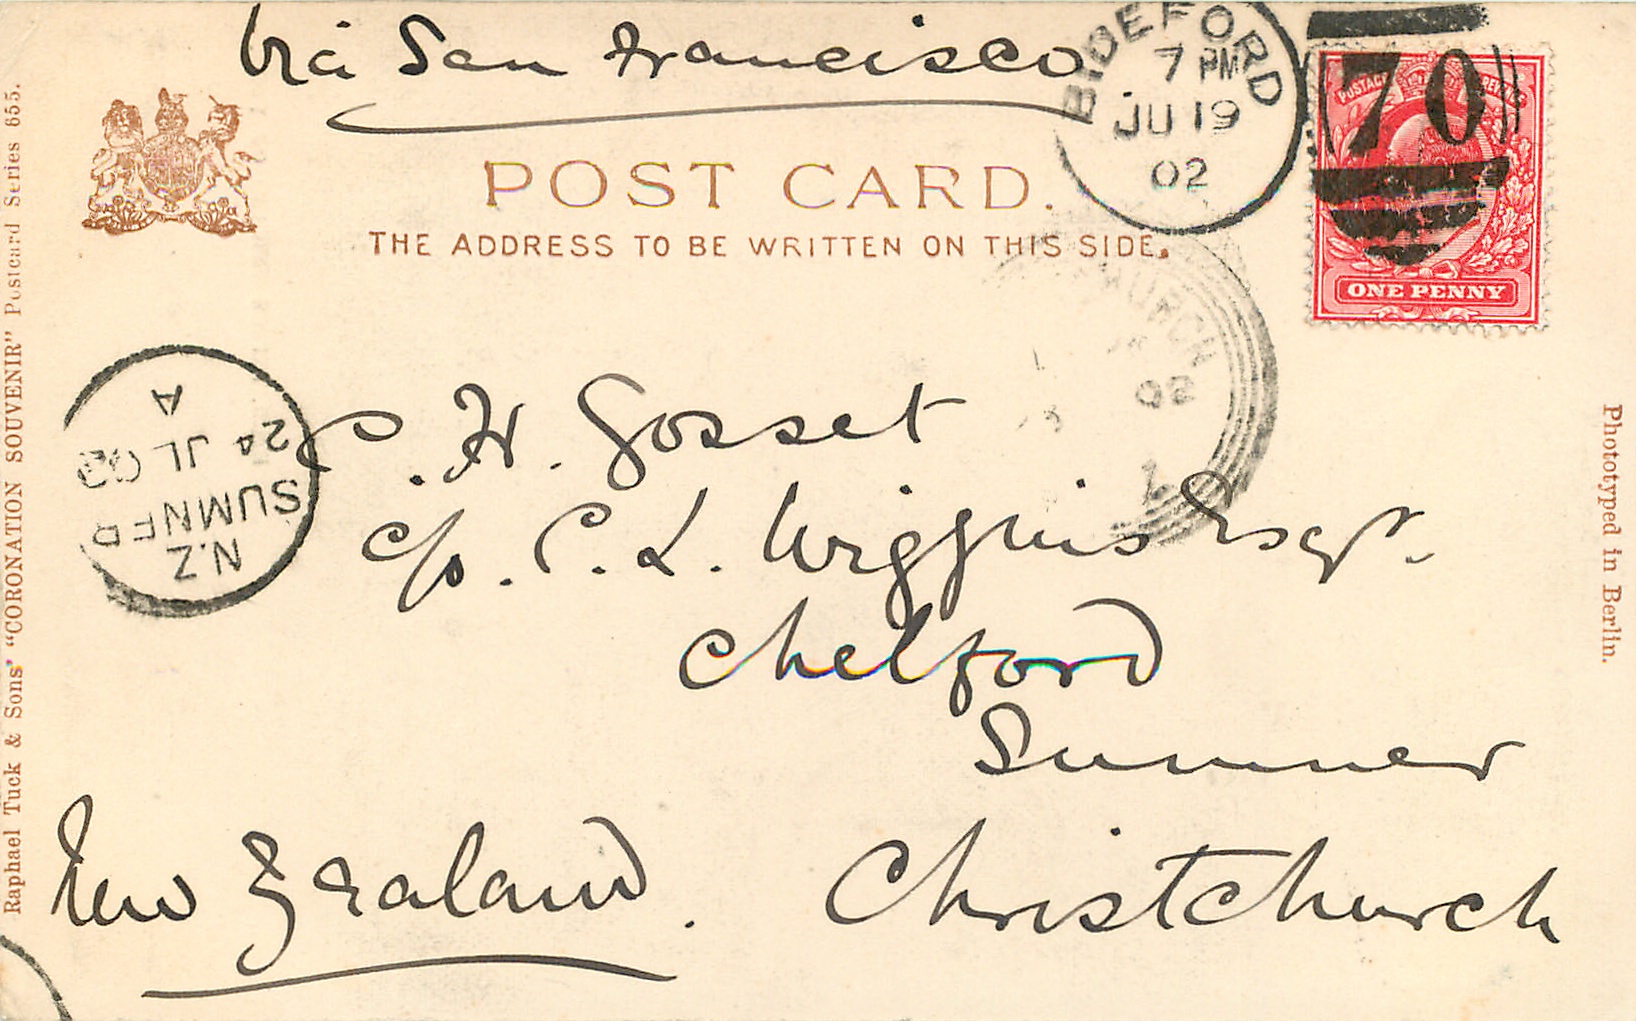 Via San Francisco.
BIDEFORD
7 PM
JU 19
02
70
POSTAGE
ONE PENNY
POST CARD.
THE ADDRESS TO BE WRITTEN ON THIS SIDE.
HURCH
02
A
24 JL 02
SUMNER
N.Z
C. H. Gosset
c/o. C. L. Wiggins Esqr.
Chelford
Sumner
Christchurch
New Zealand.
Raphael Tuck & Sons' "CORONATION SOUVENIR" Postcard Series 655.
Phototyped in Berlin.